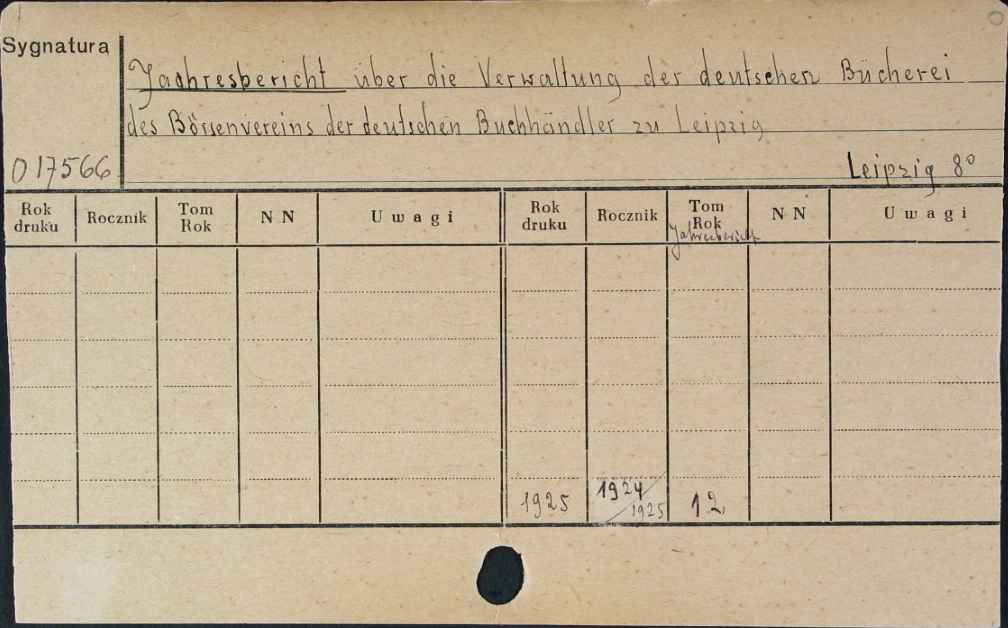 Sygnatura
Jaahresbericht über die Verwaltung der deutschen Bücherei
des Börsenvereins der deutschen Buchhändler zu Leipzig
O 17566
Leipzig 8°
Rok druku Rocznik Tom Rok N N Uwagi Rok druku Rocznik Tom Rok N N Uwagi
Jahresbericht
1925 1924/1925 12